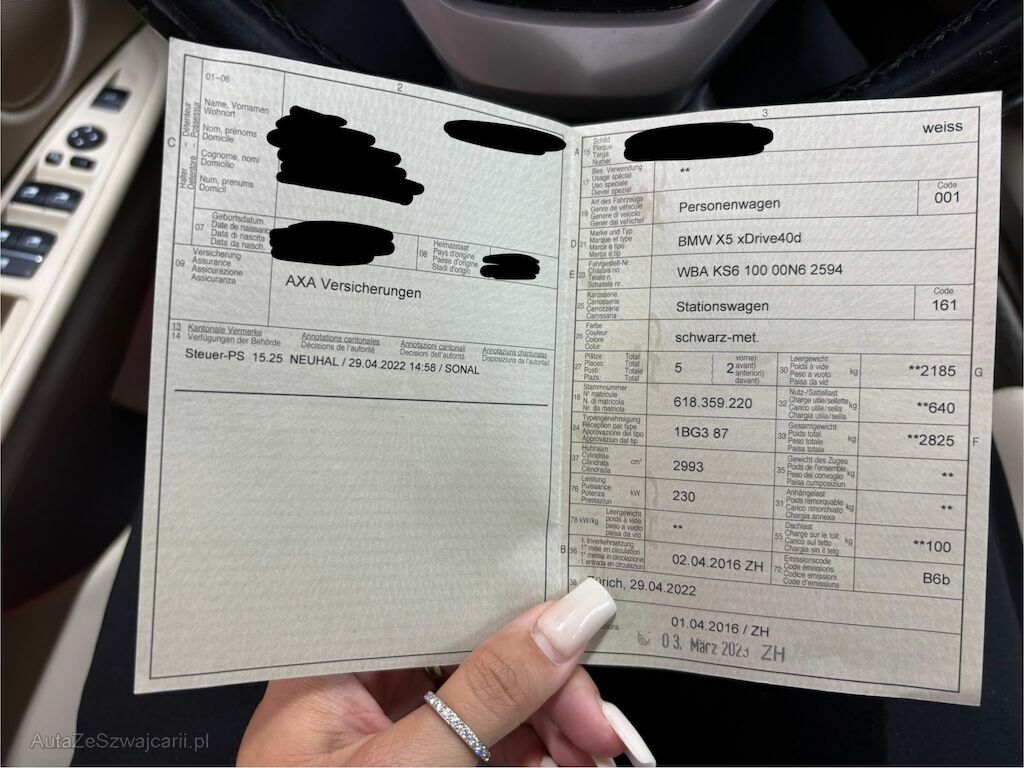 2
01-06
Name, Vornamen
Wohnort
Nom, prénoms
Domicile
Cognome, nomi
Domicilio
Num, prenums
Domicil
C
Halter Détenteur
Detentore Possessur
07
Geburtsdatum
Date de naissance
Data di nascita
Data da nasch.
08
Heimatstaat
Pays d'origine
Paese d'origine
Stadi d'origin
09
Versicherung
Assurance
Assicurazione
Assicuranza
AXA Versicherungen
13 Kantonale Vermerke Annotations cantonales Annotazioni cantonali Annotaziuns chantunalas
14 Verfügungen der Behörde Décisions de l'autorité Decisioni dell'autorità Disposiziuns da l'autoritad
Steuer-PS 15.25 NEUHAL / 29.04.2022 14:58 / SONAL
3
A
15
Schild
Plaque
Targa
Numer
weiss
17
Bes. Verwendung
Usage spécial
Uso speciale
Diever spezial
**
19
Art des Fahrzeugs
Genre de véhicule
Genere di veicolo
Gener dal vehichel
Personenwagen
Code
001
D
21
Marke und Typ
Marque et type
Marca e tipo
Marca e tip
BMW X5 xDrive40d
E
23
Fahrgestell-Nr.
Châssis no
Telaio n.
Schassis nr.
WBA KS6 100 00N6 2594
25
Karosserie
Carrosserie
Carrozzeria
Carossaria
Stationswagen
Code
161
26
Farbe
Couleur
Colore
Color
schwarz-met.
27
Plätze: Total
Places: Total
Posti: Totale
Plazs: Total
5
2
vorne)
avant)
anteriori)
davant)
30
Leergewicht
Poids à vide
Peso a vuoto
Paisa da vid
kg
**2185
G
18
Stammnummer
N° matricule
N. di matricola
Nr. da matricla
618.359.220
32
Nutz-/Sattellast
Charge utile/sellette
Carico utile/sella
Chargia utila/sella
kg
**640
24
Typengenehmigung
Réception par type
Approvazione del tipo
Approvaziun dal tip
1BG3 87
33
Gesamtgewicht
Poids total
Peso totale
Paisa totala
kg
**2825
F
37
Hubraum
Cylindrée
Cilindrata
Cilindrada
cm³
2993
35
Gewicht des Zuges
Poids de l'ensemble
Peso del convoglio
Paisa cumposiziun
kg
**
76
Leistung
Puissance
Potenza
Prestaziun
kW
230
31
Anhängelast
Poids remorquable
Carico rimorchiato
Chargia annexa
kg
**
78 kW/kg
Leergewicht
poids à vide
peso a vuoto
paisa da vid
**
55
Dachlast
Charge sur le toit
Carico sul tetto
Chargia sin il tetg
kg
**100
B
36
1. Inverkehrsetzung
1re mise en circulation
1a messa in circolazione
1. entrada en circulaziun
02.04.2016 ZH
72
Emissionscode
Code émissions
Codice emissioni
Code d'emissiuns
B6b
38
Zürich, 29.04.2022
01.04.2016 / ZH
03. März 2023 ZH
AutaZeSzwajcarii.pl